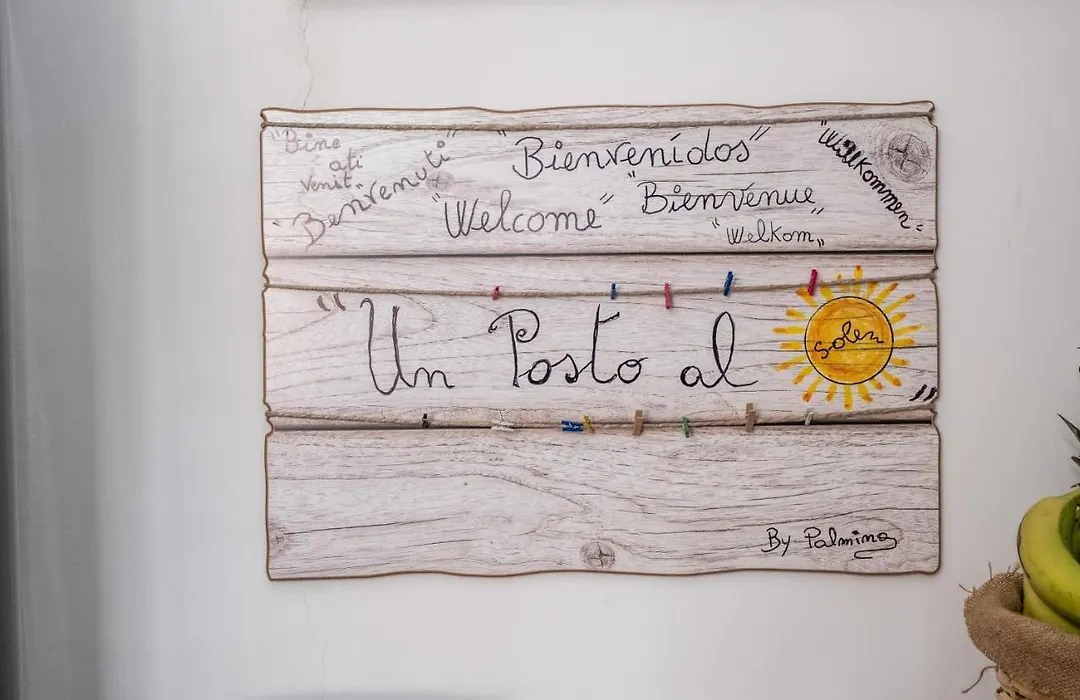 "Bine
ati
venit"
"Benvenuti"
"Bienvenidos"
"Welcome"
"Bienvenue"
"Welkom"
"Willkommen"
"Un Posto al
"
By Palmina